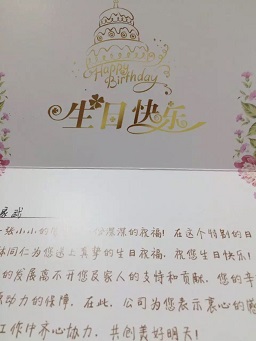 Happy
Birthday
生日快乐
一张小小的
深深的祝福！在这个特别的日
体同仁为您送上真挚的生日祝福，祝您生日快乐！
的发展离不开您及家人的支持和贡献，您的辛
动力的保障，在此，公司为您表示衷心的感
工作中齐心协力，共创美好明天！